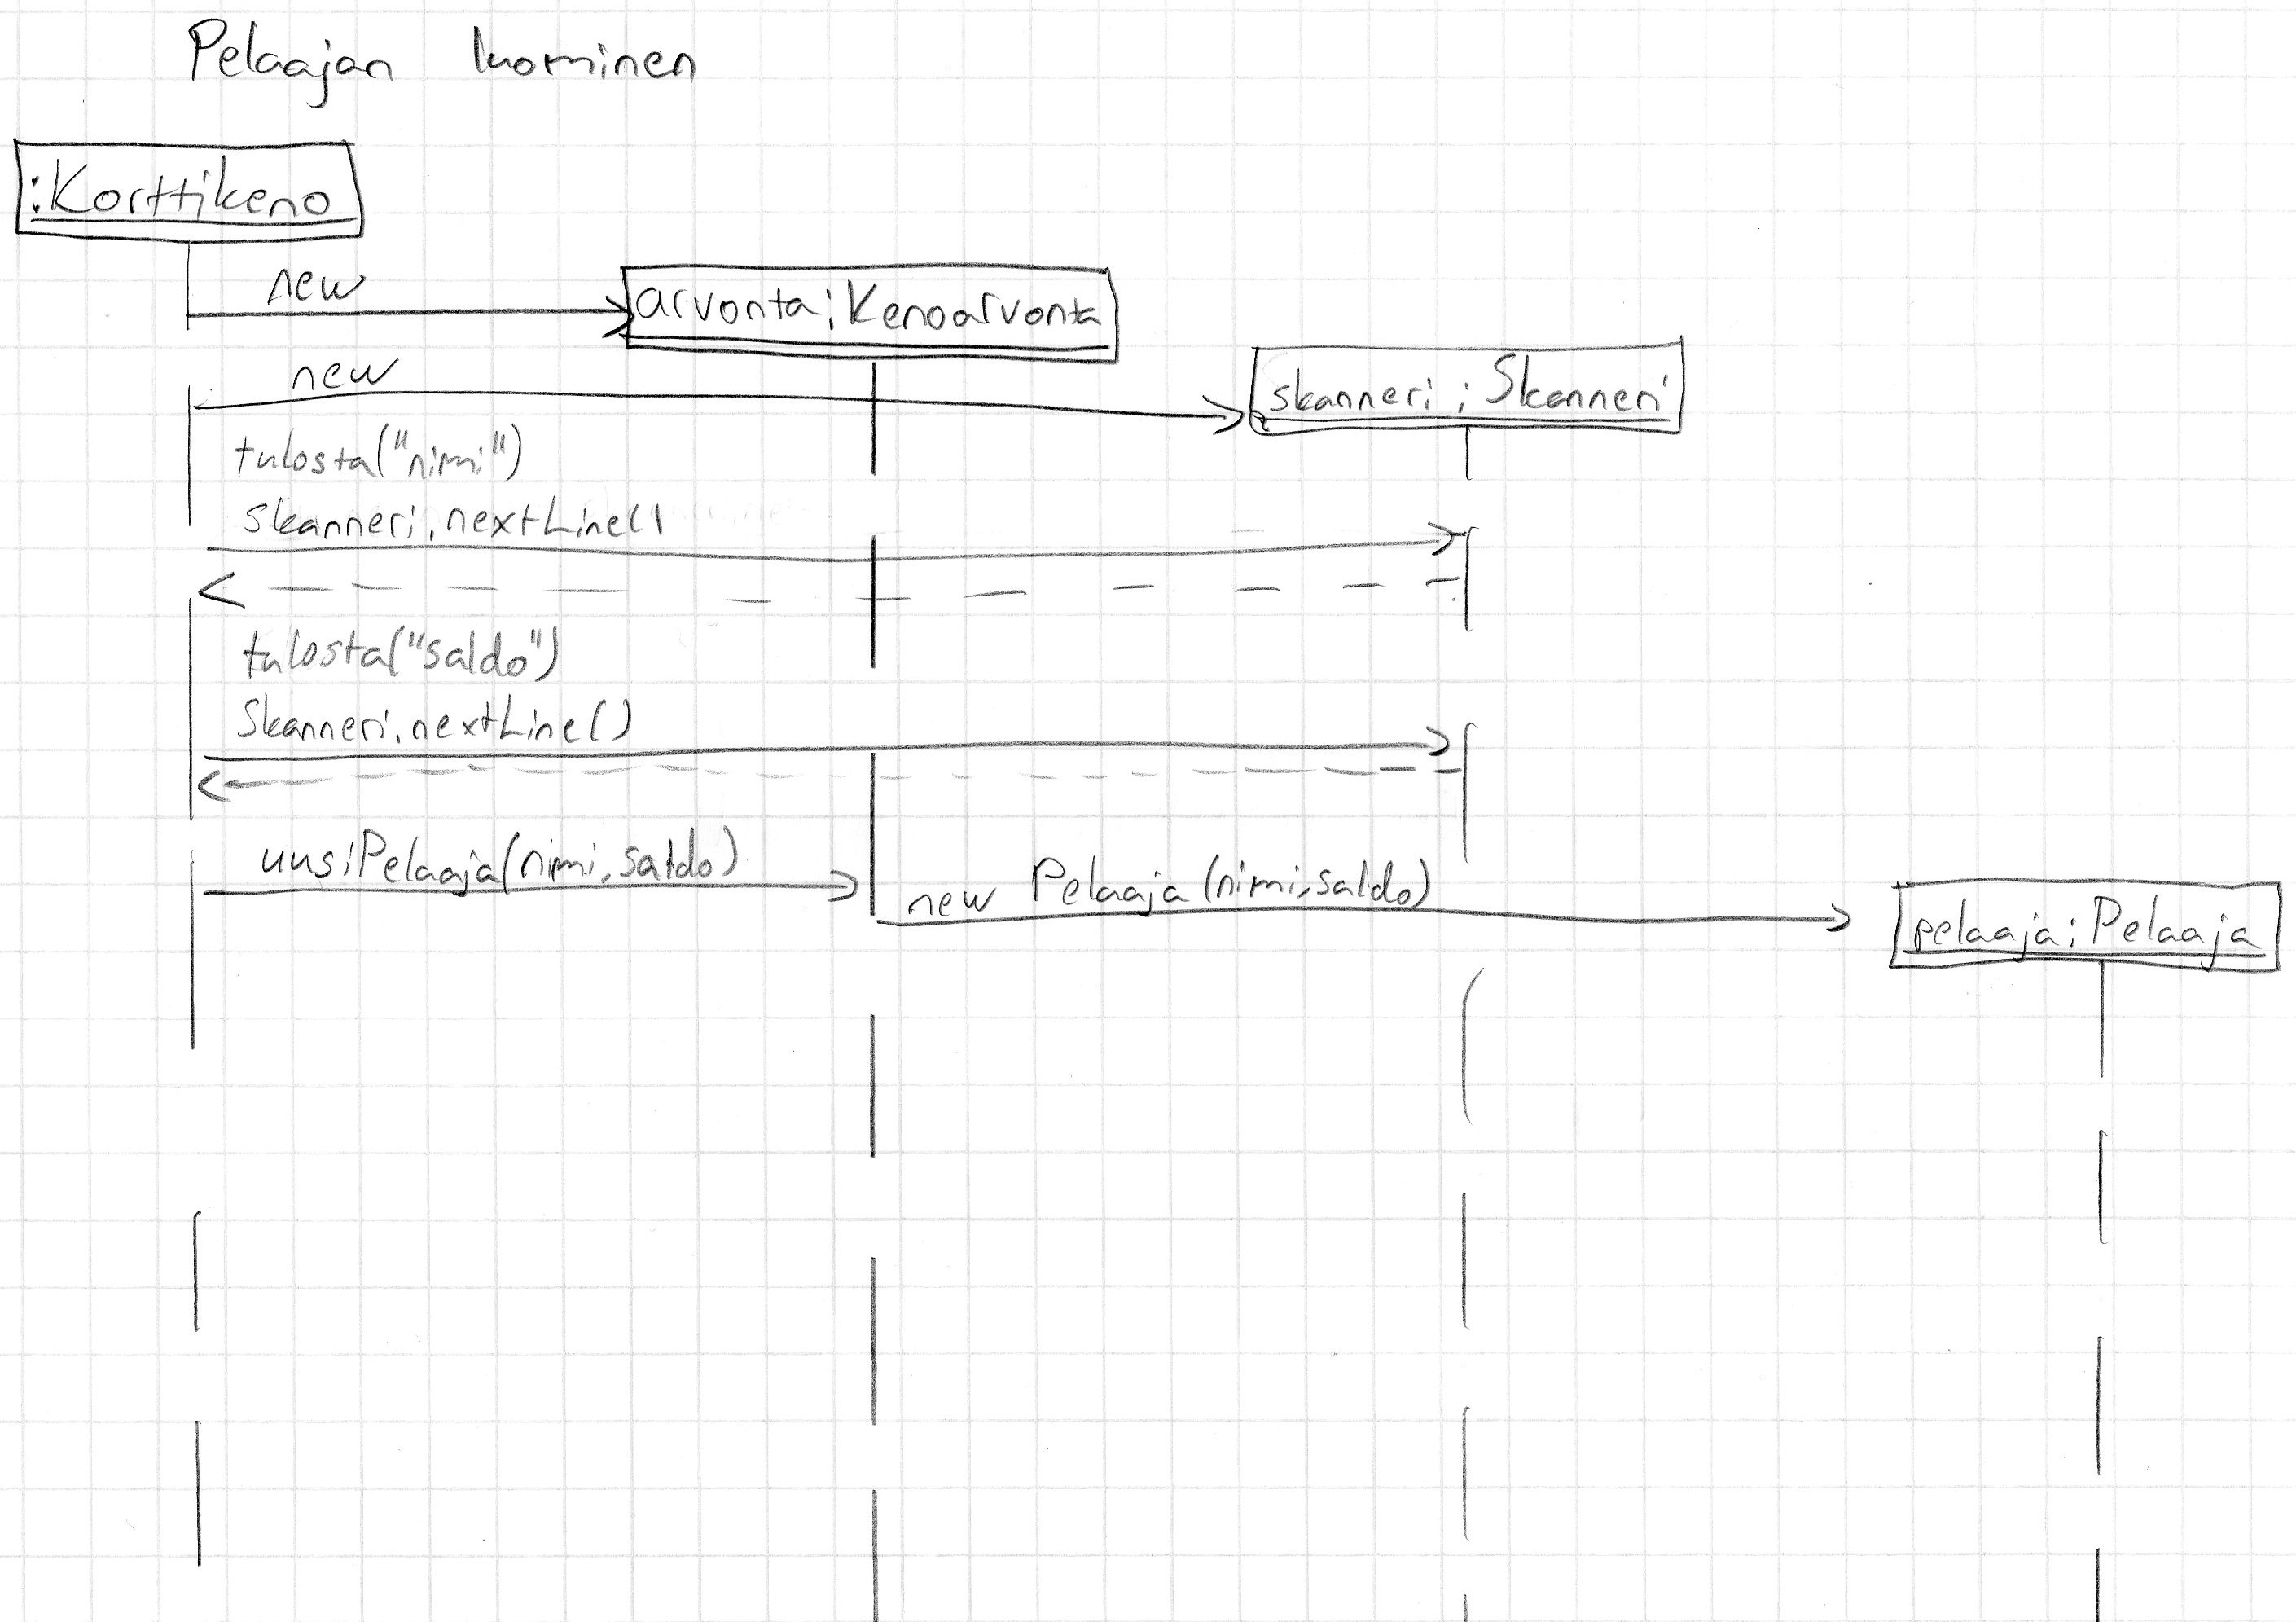 Pelaajan luominen
:Korttikeno
new
arvonta:Kenoarvonta
new
skanneri:Skanneri
tulosta("nimi")
skanneri.nextLine()
tulosta("saldo")
Skanneri.nextLine()
uusiPelaaja(nimi,saldo)
new Pelaaja(nimi,saldo)
pelaaja:Pelaaja